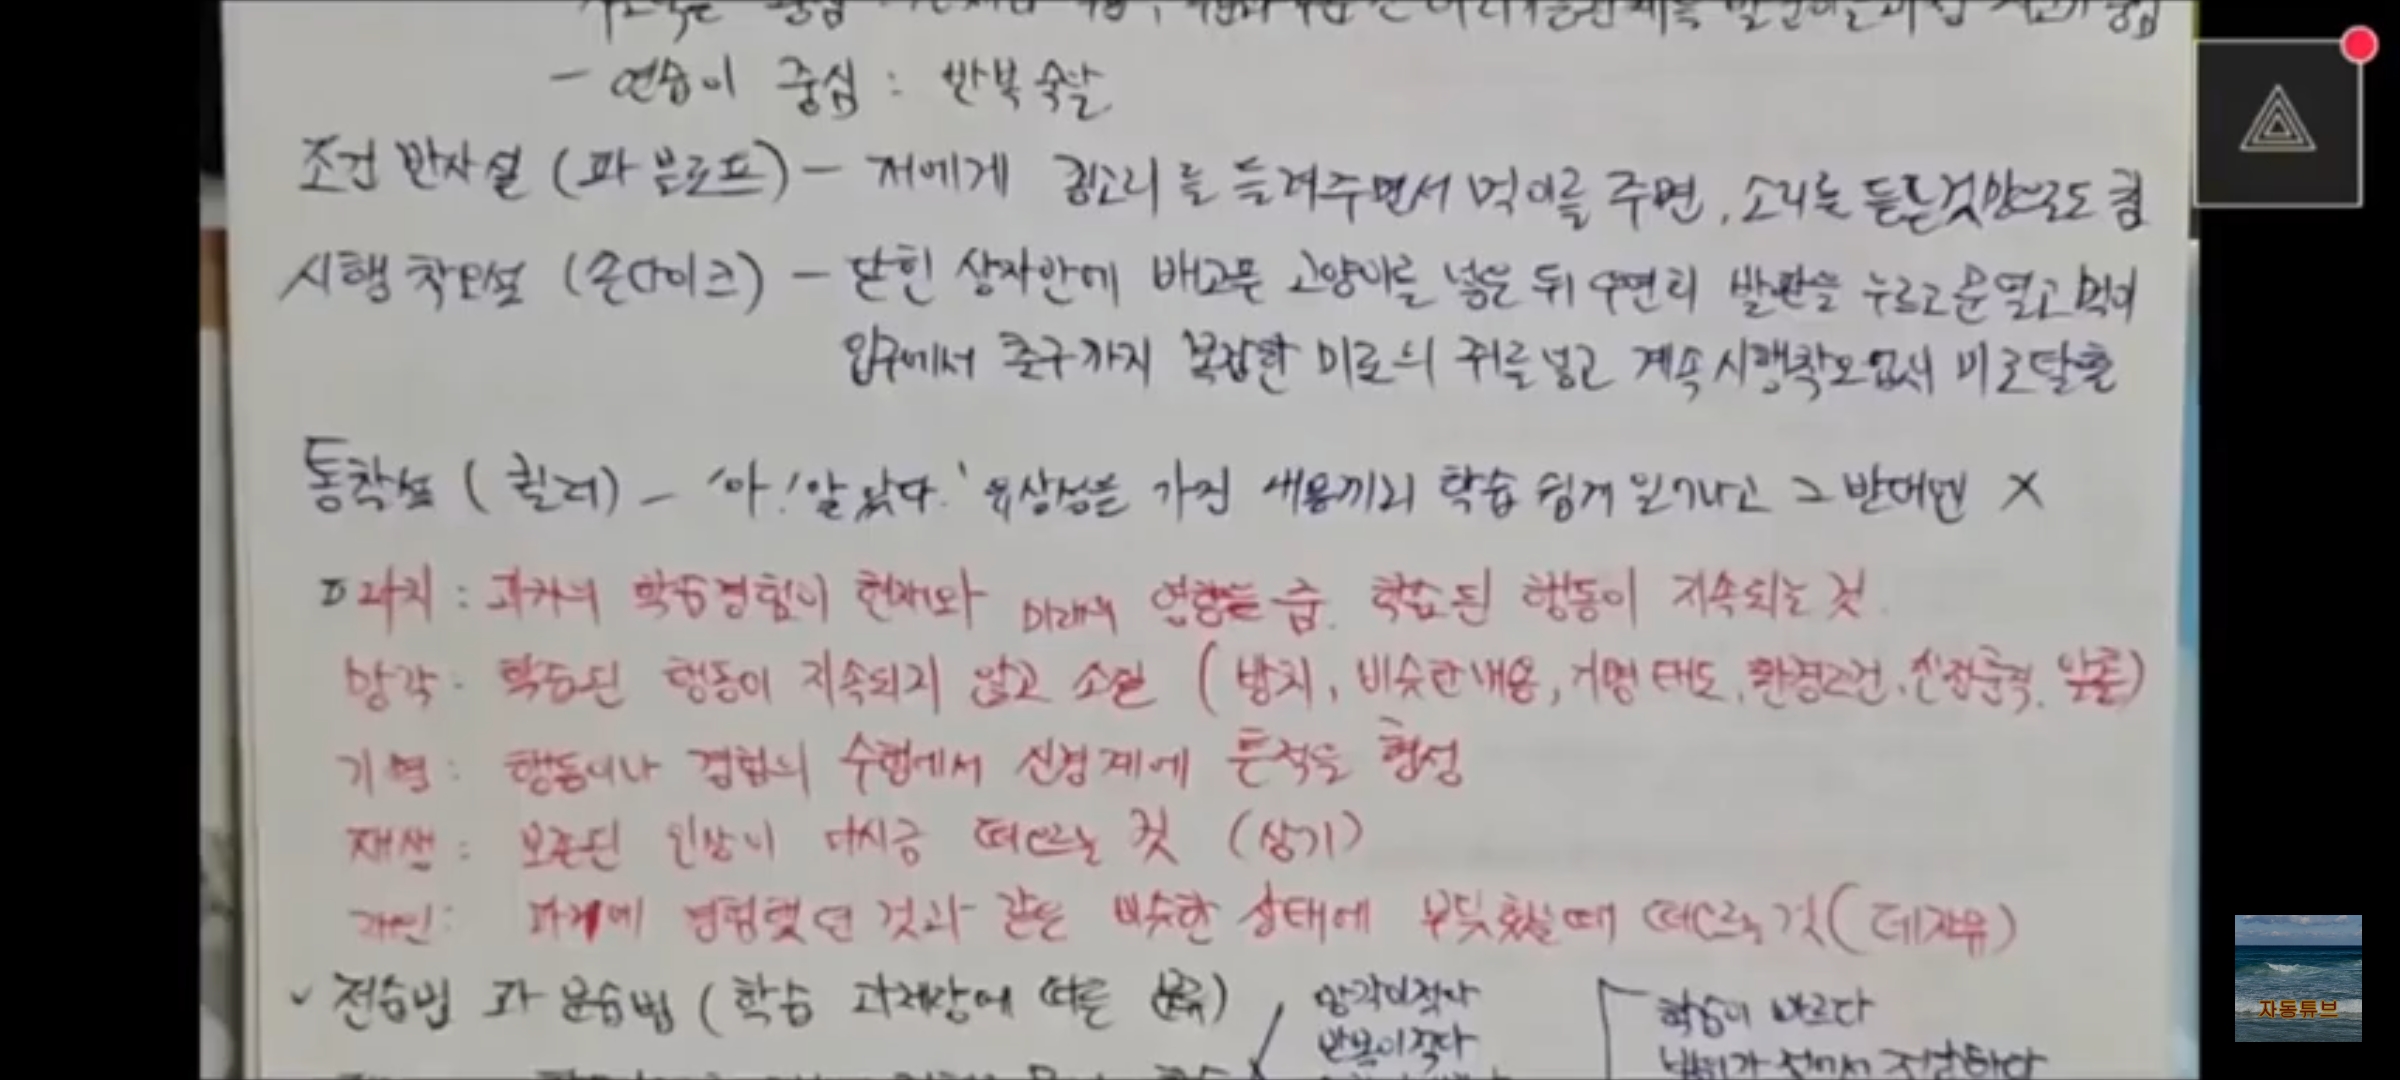 - 연습이 중심 : 반복 숙달
조건반사설 (파블로프) - 개에게 종소리를 들려주면서 먹이를 주면, 소리를 듣는것만으로도 침
시행착오설 (손다이크) - 닫힌 상자안에 배고픈 고양이를 넣은 뒤 우연히 발판을 누르고 문열고 먹이
입구에서 출구까지 복잡한 미로의 쥐를 넣고 계속 시행착오 미로탈출
통찰설 (퀼러) - '아! 알았다.' 유상성을 가진 내용끼리 학습 쉽게 일어나고 그 반대면 X
파지 : 과거의 학습경험이 현재와 미래의 영향을 줌. 학습된 행동이 지속되는 것.
망각 : 학습된 행동이 지속되지 않고 소멸 (방치, 비슷한내용, 거명태도, 환경조건, 약물)
기명 : 행동이나 경험의 수행에서 신경계에 흔적을 형성
재생 : 보존된 인상이 다시금 떠오르는 것 (상기)
재인 : 과거에 경험했던 것과 같은 비슷한 상태에 부딪혔을때 떠오르는 것 (데자뷰)
✓ 전습법 과 분습법 (학습 과제상에 따른 분류)
망각이적다
반복이적다
학습이 빠르다
자동튜브